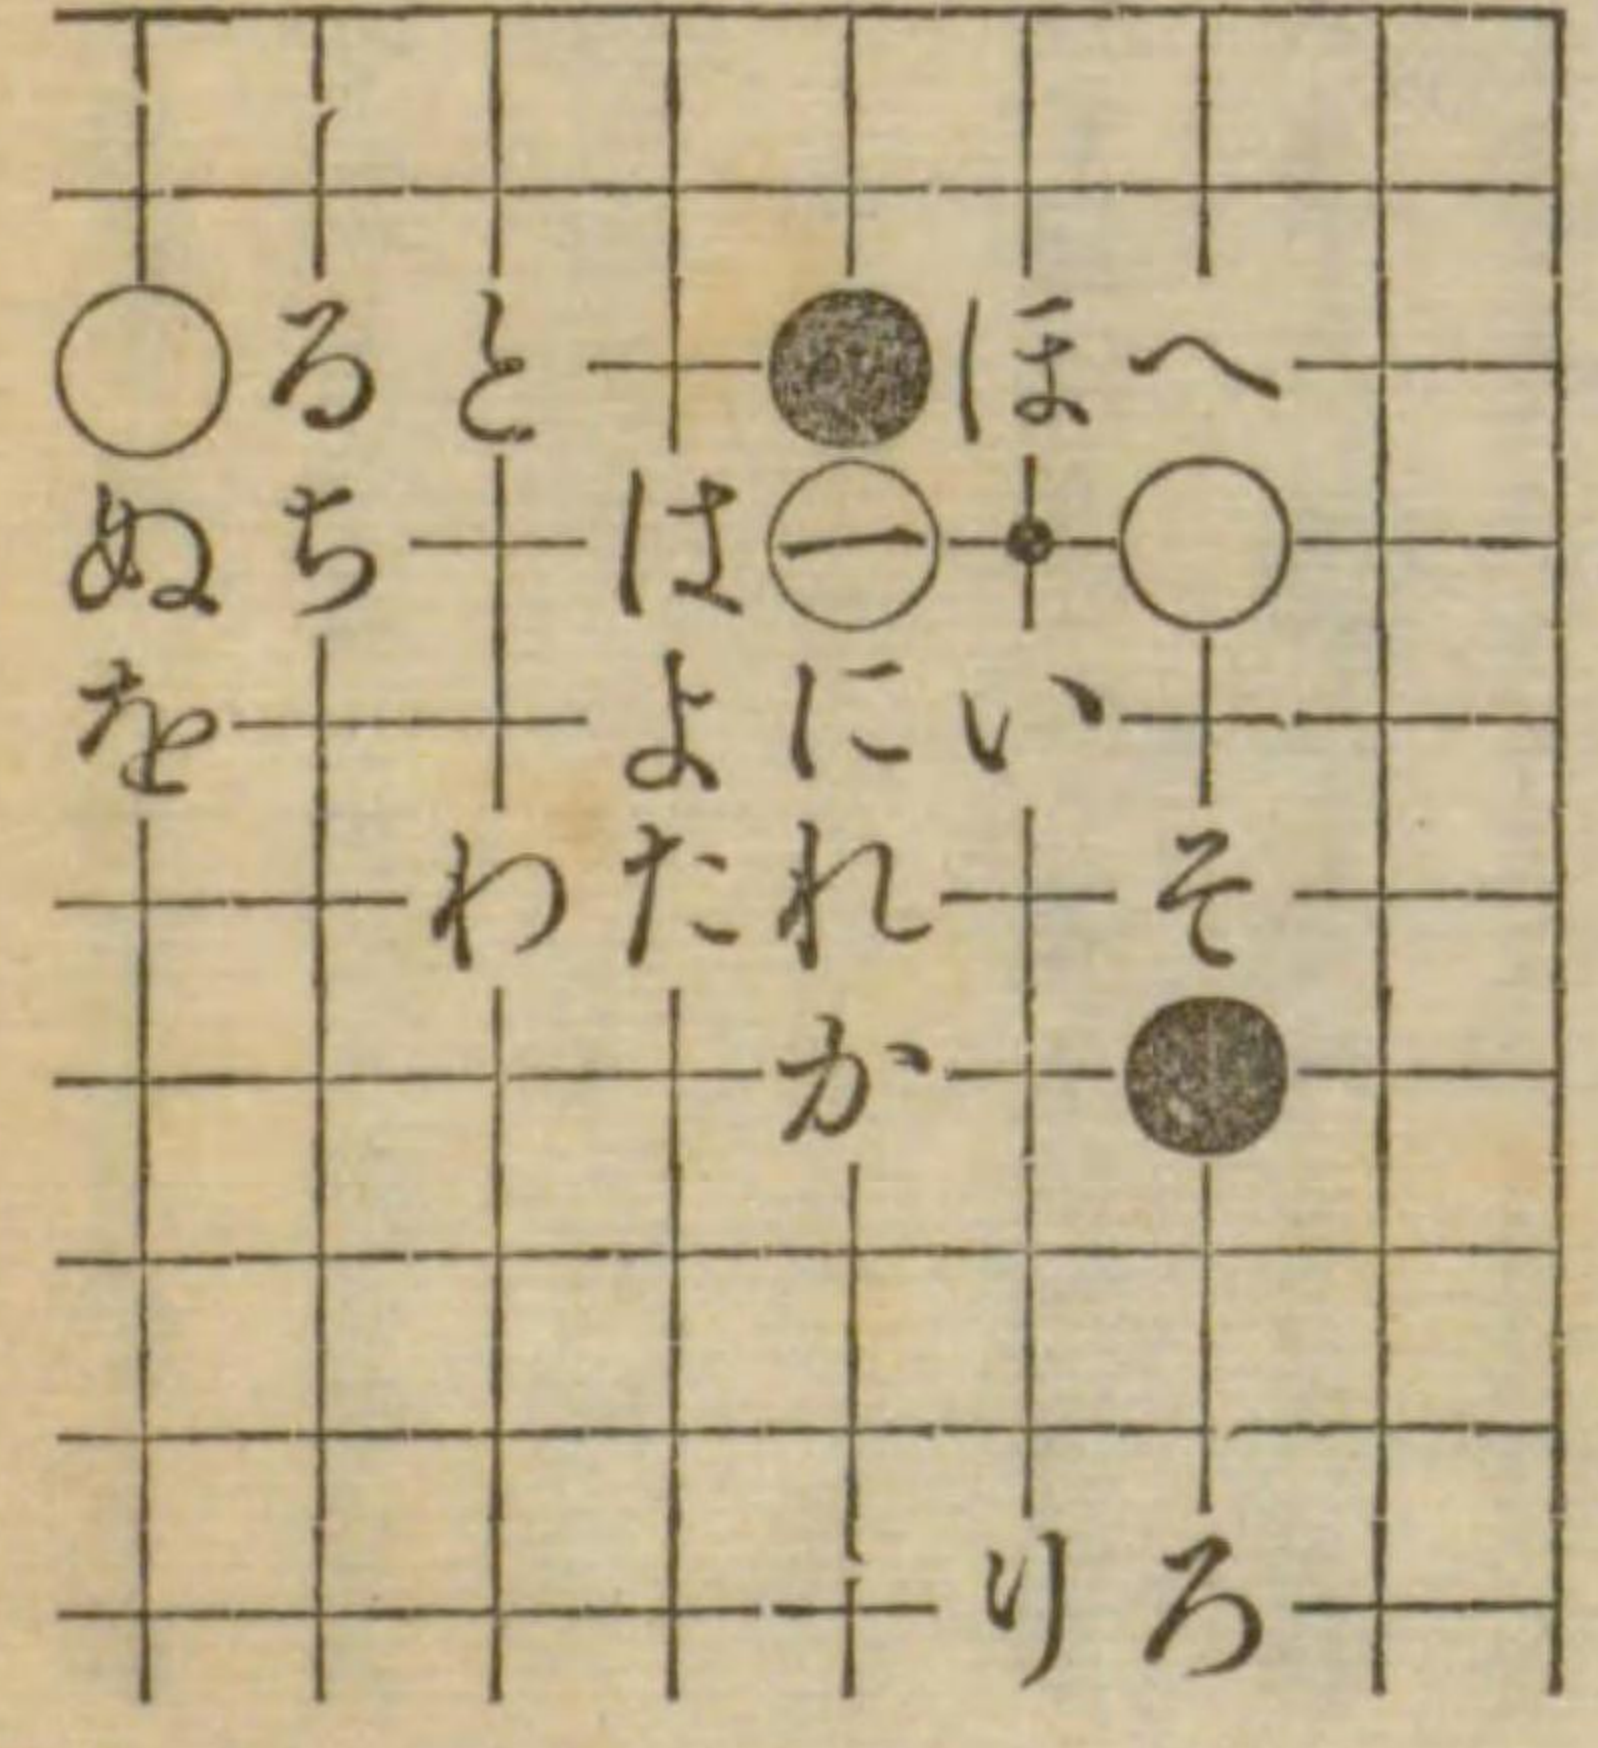 る と ほ へ
ぬ ち は 一
を よ に い
わ た れ そ
か
り ろ